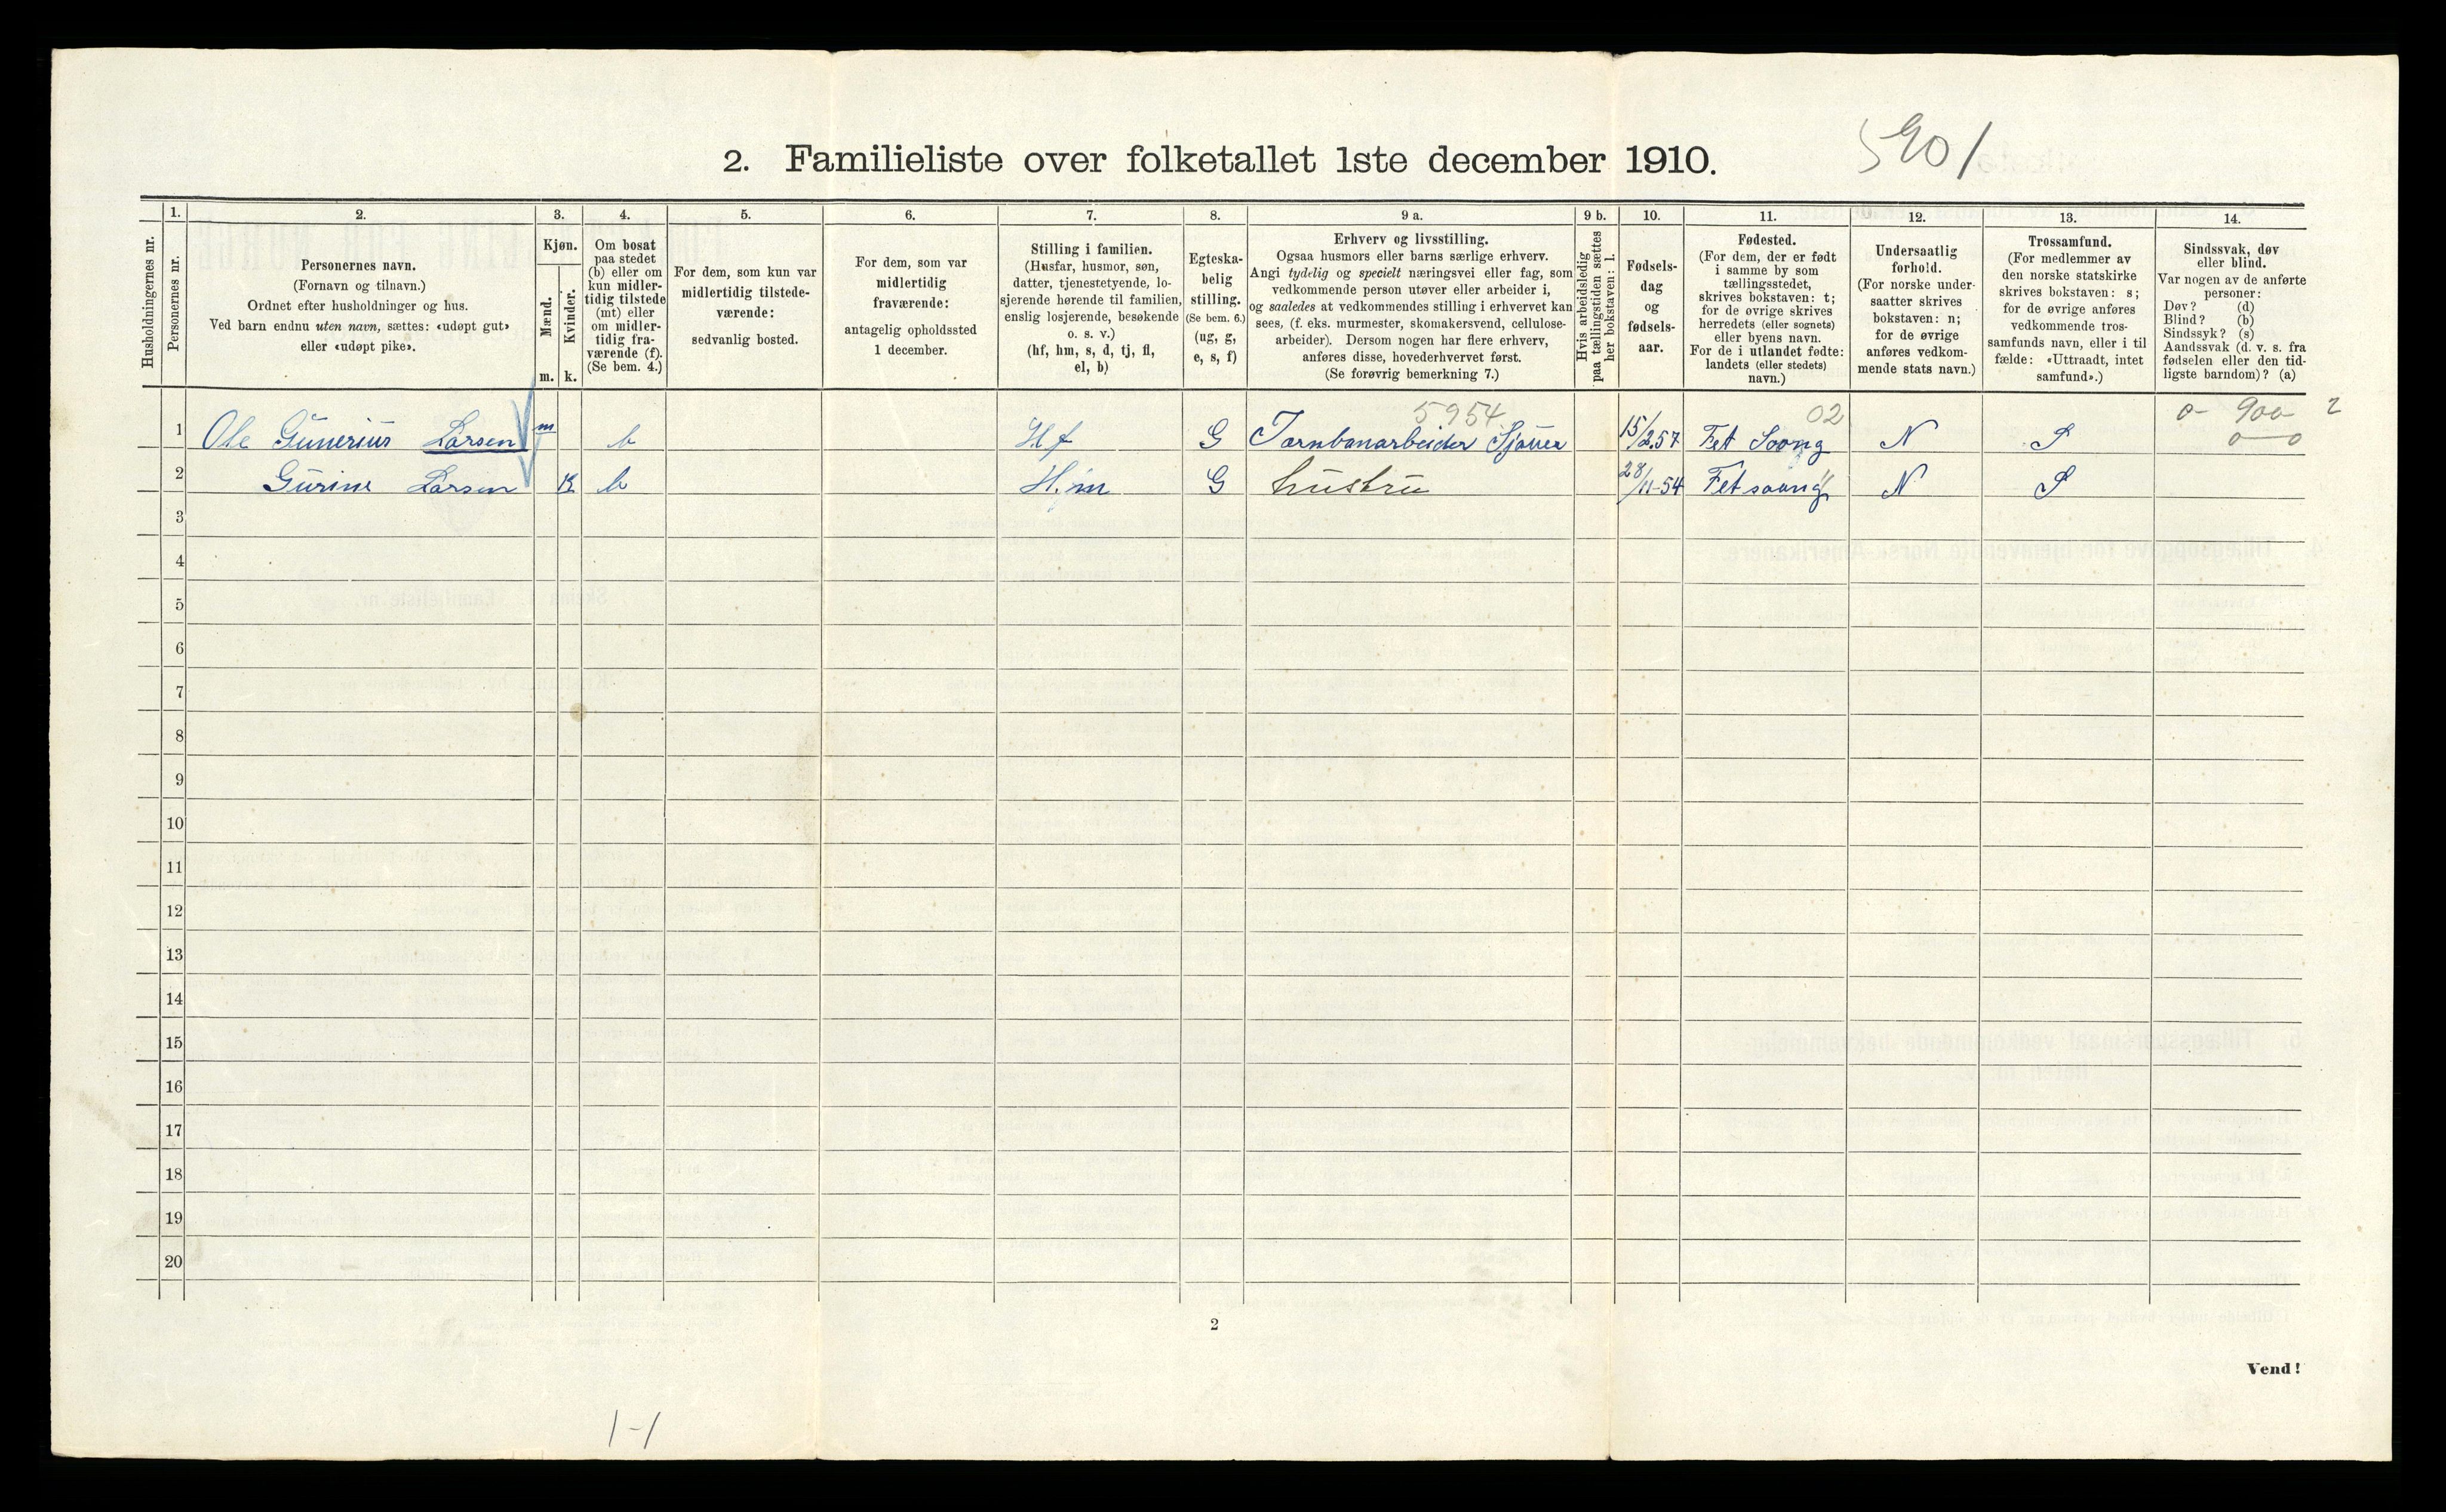 5901
2. Familieliste over folketallet 1ste december 1910.
Husholdningernes nr.
1.
Personernes nr.
2.
Personernes navn.
(Fornavn og tilnavn.)
Ordnet efter husholdninger og hus.
Ved barn endnu uten navn, sættes: «udøpt gut»
eller «udøpt pike».
3.
Kjøn.
Mænd.
Kvinder.
m. k.
4.
Om bosat
paa stedet
(b) eller om
kun midler-
tidig tilstede
(mt) eller
om midler-
tidig fra-
værende (f).
(Se bem. 4.)
5.
For dem, som kun var
midlertidig tilstede-
værende:
sedvanlig bosted.
6.
For dem, som var
midlertidig
fraværende:
antagelig opholdssted
1 december.
7.
Stilling i familien.
(Husfar, husmor, søn,
datter, tjenestetyende, lo-
sjerende hørende til familien,
enslig losjerende, besøkende
o. s. v.)
(hf, hm, s, d, tj, fl,
el, b)
8.
Egteska-
belig
stilling.
(Se bem. 6.)
(ug, g,
e, s, f)
9 a.
Erhverv og livsstilling.
Ogsaa husmors eller barns særlige erhverv.
Angi tydelig og specielt næringsvei eller fag, som
vedkommende person utøver eller arbeider i,
og saaledes at vedkommendes stilling i erhvervet kan
sees, (f. eks. murmester, skomakersvend, cellulose-
arbeider). Dersom nogen har flere erhverv,
anføres disse, hovederhvervet først.
(Se forøvrig bemerkning 7.)
9 b.
Hvis arbeidsledig
paa tællingstiden sættes
her bokstaven: l.
10.
Fødsels-
dag
og
fødsels-
aar.
11.
Fødested.
(For dem, der er født
i samme by som
tællingsstedet,
skrives bokstaven: t;
for de øvrige skrives
herredets (eller sognets)
eller byens navn.
For de i utlandet fødte:
landets (eller stedets)
navn.)
12.
Undersaatlig
forhold.
(For norske under-
saatter skrives
bokstaven: n;
for de øvrige
anføres vedkom-
mende stats navn.)
13.
Trossamfund.
(For medlemmer av
den norske statskirke
skrives bokstaven: s;
for de øvrige anføres
vedkommende tros-
samfunds navn, eller i til
fælde: «Uttraadt, intet
samfund».)
14.
Sindssvak, døv
eller blind.
Var nogen av de anførte
personer:
Døv? (d)
Blind? (b)
Sindssyk? (s)
Aandssvak (d. v. s. fra
fødselen eller den tid-
ligste barndom)? (a)
5954 02 0- 900 2
1 Ole Gunerius Larsen m b Hf G Jarnbanarbeider Sjauer 15/2.57 Fet Soong N S 0-0
2 Gurine Larsen K b H.m G hustru 28/11-54 Fet soung N S
3
4
5
6
7
8
9
10
11
12
13
14
15
16
17
18
19
20
2
Vend!
1-1